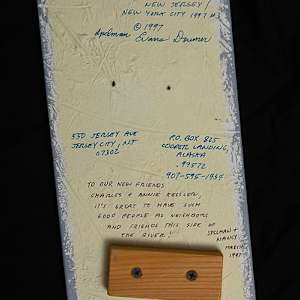 NEW JERSEY /
NEW YORK CITY 1997
© 1997
Spelman Evans Downer
550 JERSEY AVE
JERSEY CITY, NJ
07302
P.O. BOX 825
COOPER LANDING,
ALASKA
99572
907-595-1435
TO OUR NEW FRIENDS
CHARLES & ANNIE KESSLER,
IT'S GREAT TO HAVE SUCH
GOOD PEOPLE AS NEIGHBORS
AND FRIENDS THIS SIDE OF
THE RIVER!
SPELMAN &
NANCY
MARCH
1997